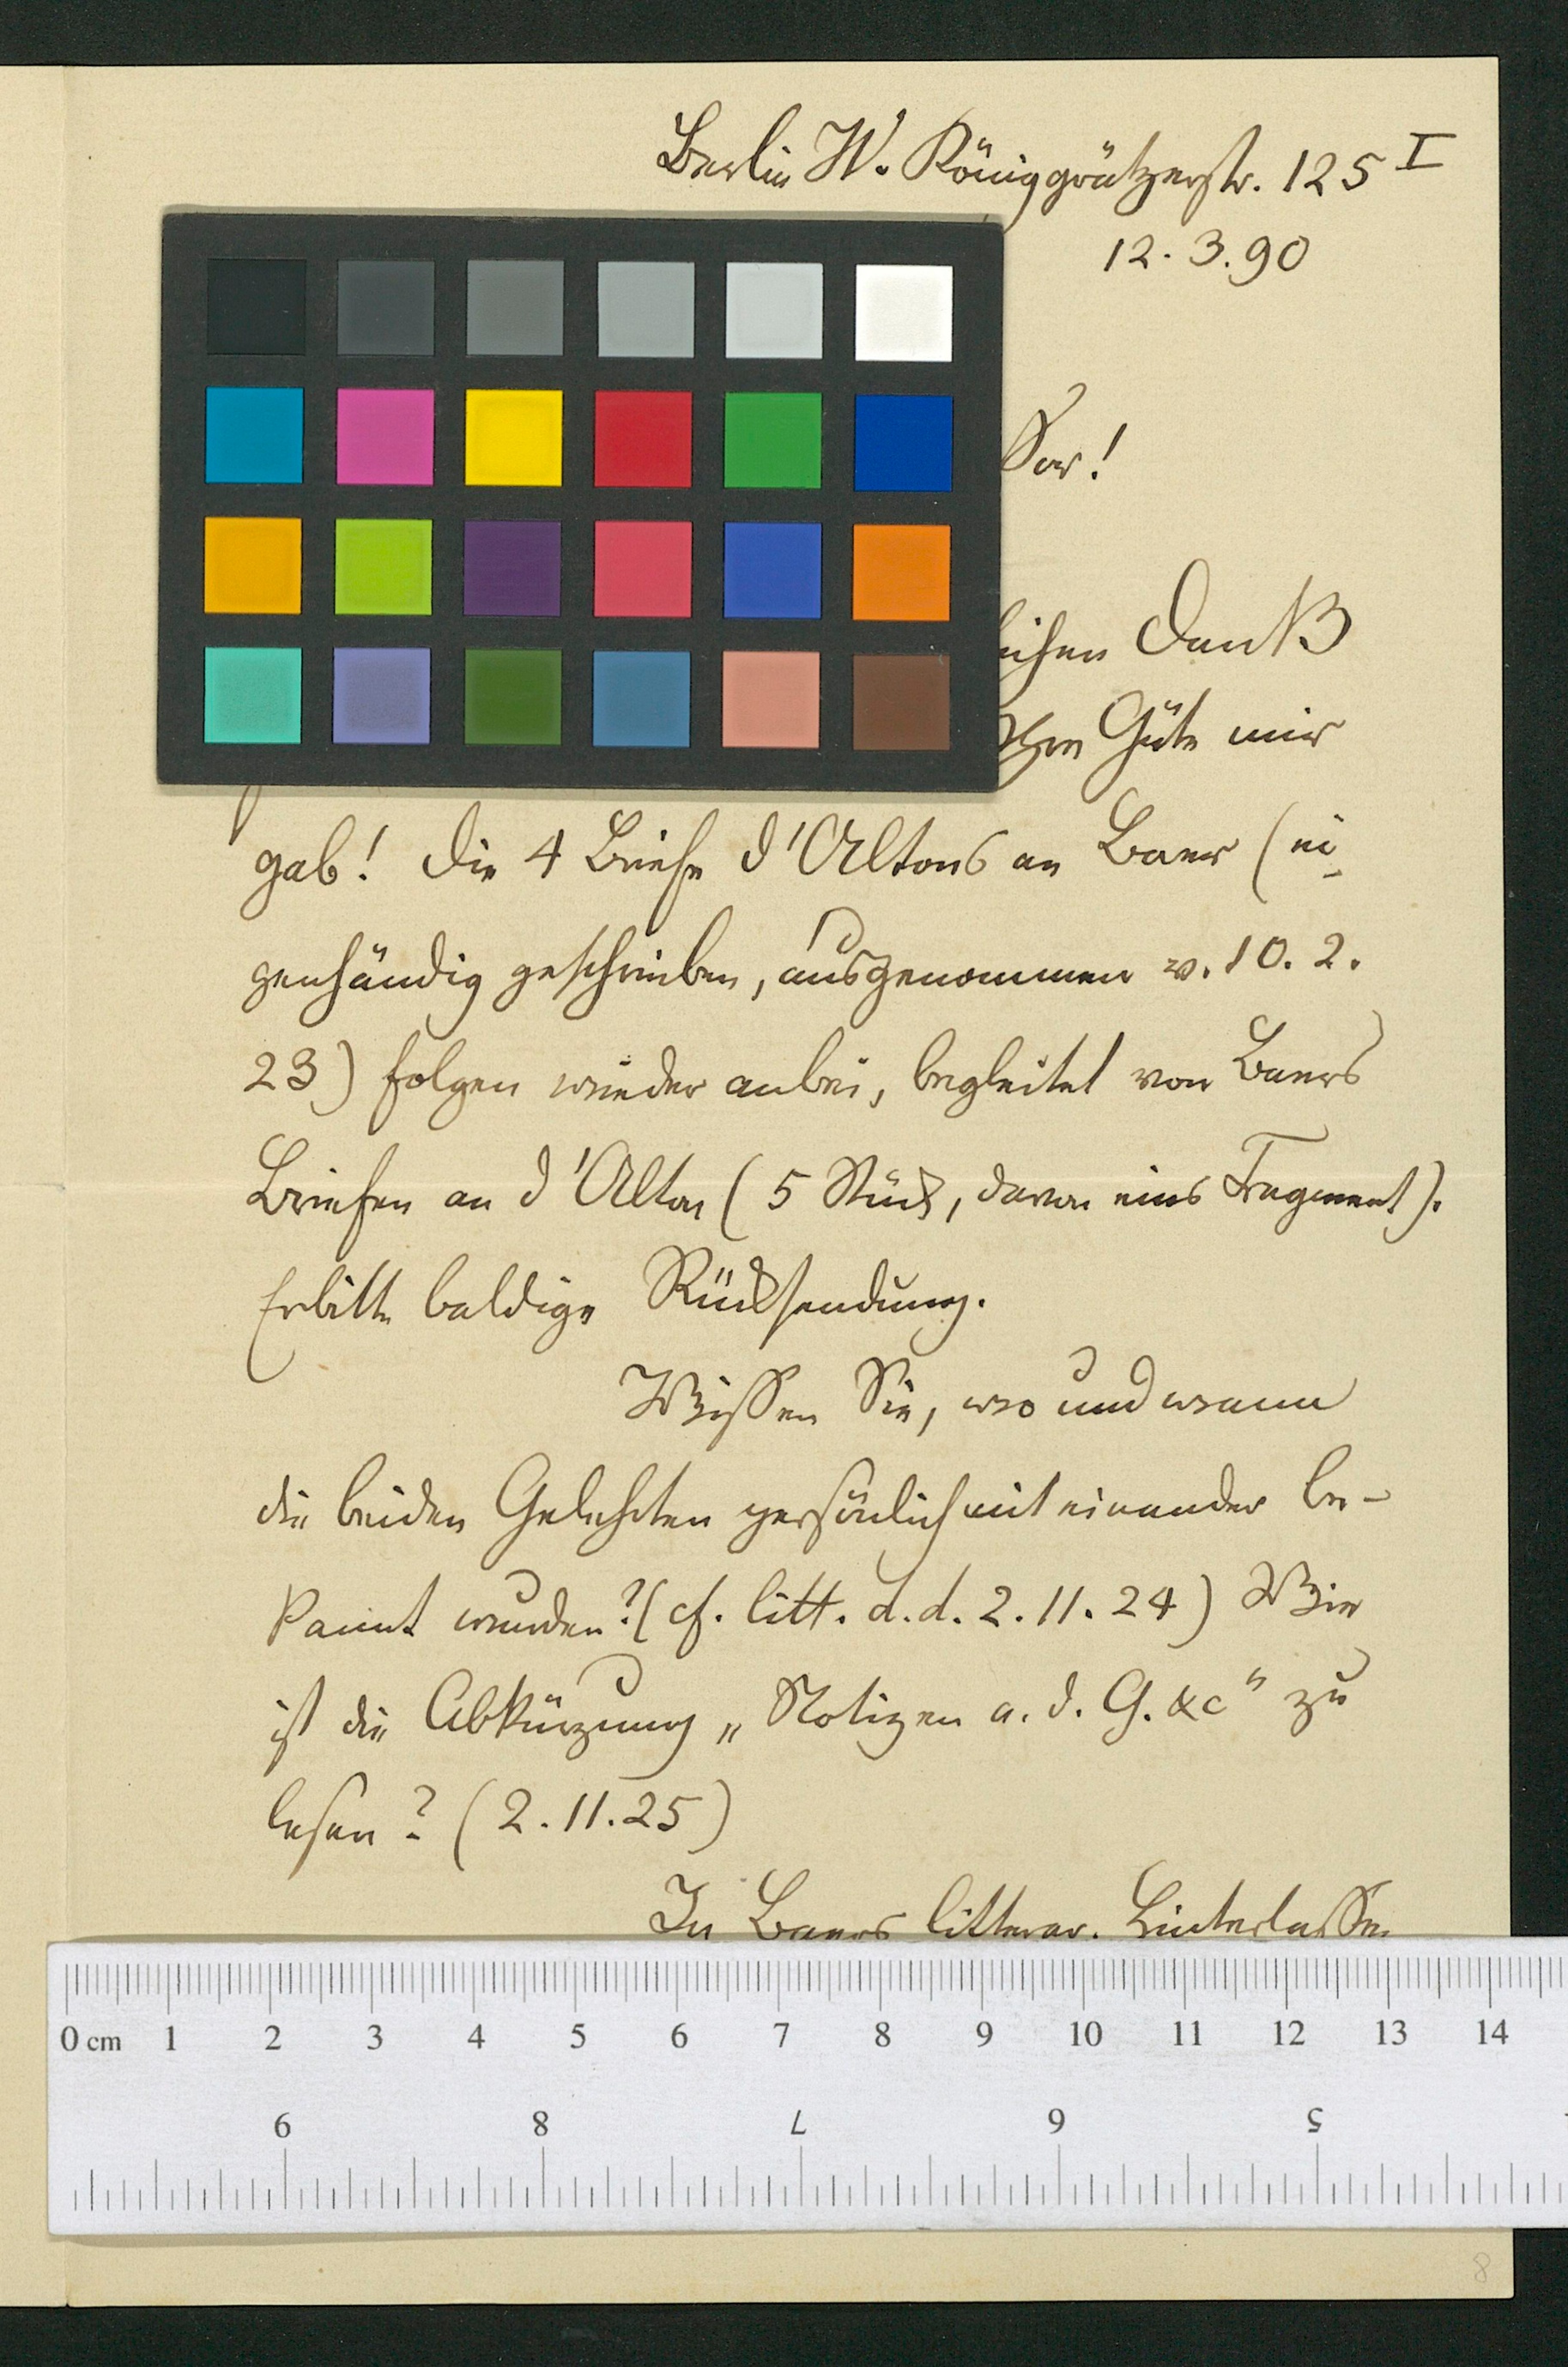 Berlin W. Königgrätzerstr. 125 I
12. 3. 90
sor!
ichen Dank
Ihre Güte mir
gab! Die 4 Briefe d'Altons an Baer (ei-
genhändig geschrieben, ausgenommen v. 10. 2.
23) folgen wieder anbei, begleitet von Baers
Briefen an d'Alton (5 Stück, davon eins Fragment).
Erbitte baldige Rücksendung.
Wissen Sie, wo und wann
die beiden Gelehrten persönlich mit einander be-
kannt wurden? (cf. litt. d. d. 2. 11. 24) Wie
ist die Abkürzung „Notizen a. d. G. &c" zu
lesen? (2. 11. 25)
In Baers litterar. Hinterlassen
0 cm 1 2 3 4 5 6 7 8 9 10 11 12 13 14
9 8 7 6 5
8